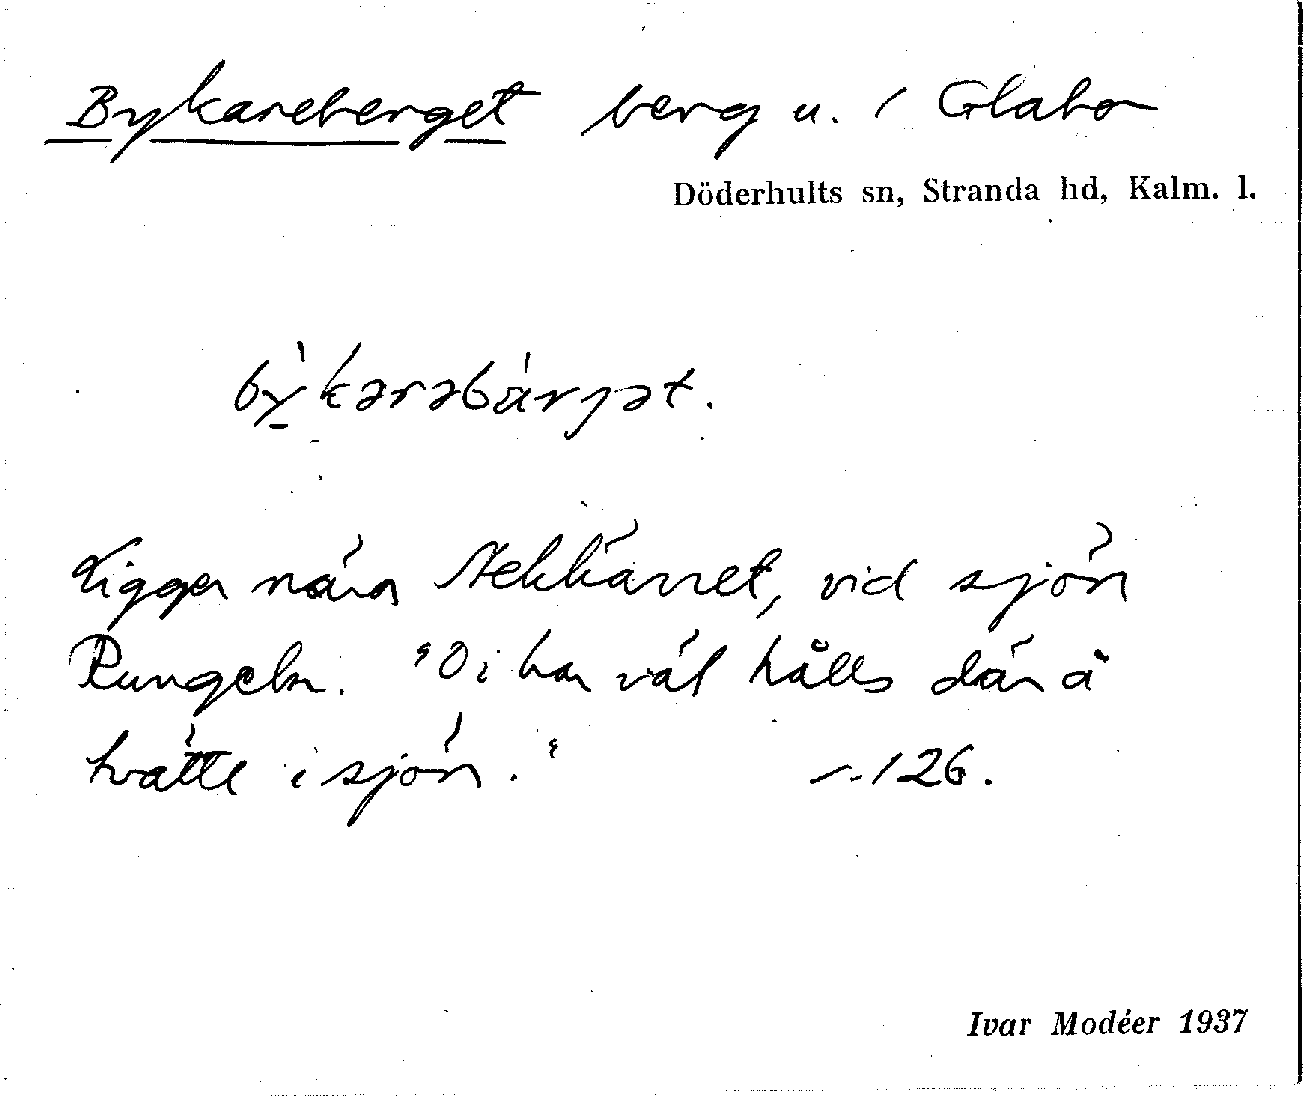 Bykareberget berg u. / Glabo
Döderhults sn, Stranda hd, Kalm. l.
bỳ̱kərəbárjət.
Ligger nära Stekkärret, vid sjön
Rungeln. "Di har väl hålls där å
tvätte i sjön."
126.
Ivar Modéer 1937